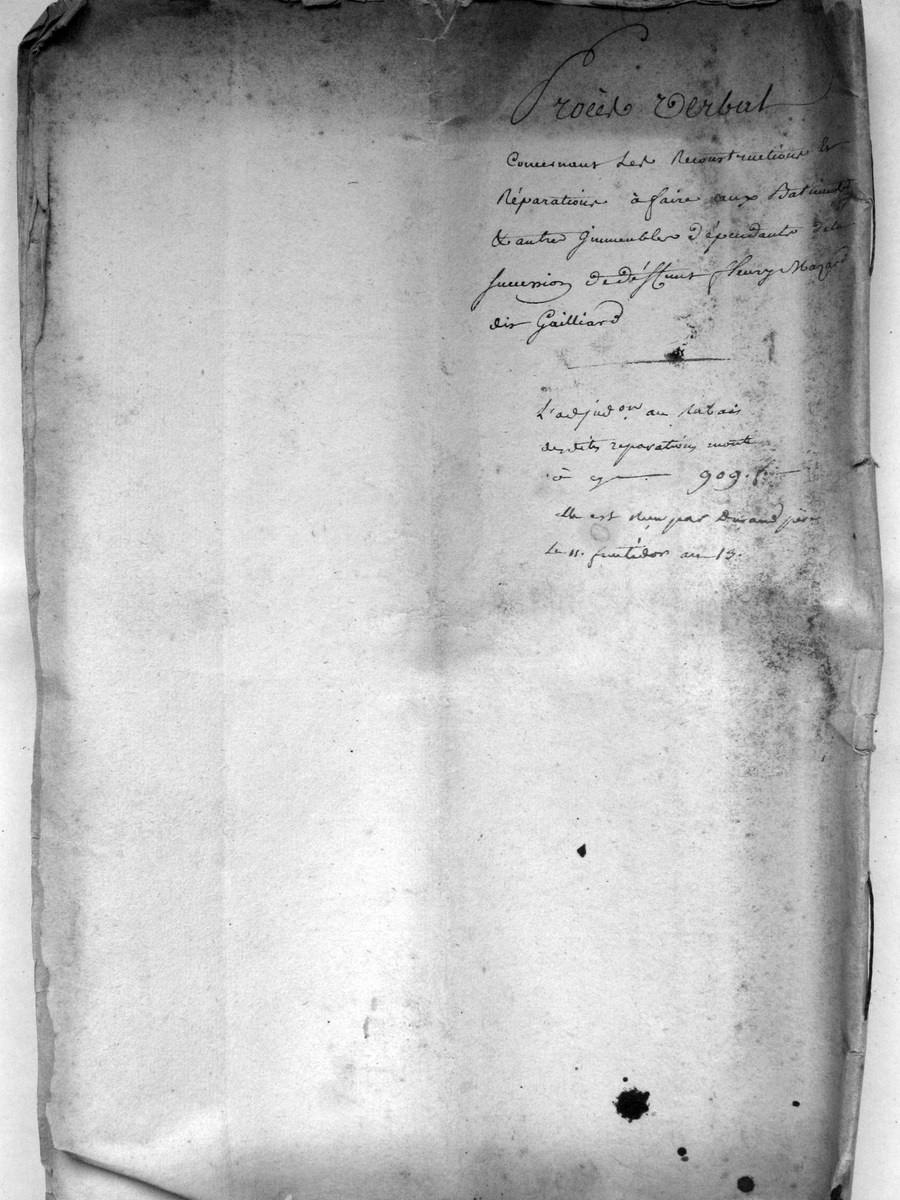 Procès Verbal
Concernant Les Reconstructions Et
Réparations à faire aux Batiments
& autres Immeubles Dépendants de la
sucession de déffunt fleury Mazard
dit Gailliard
L'adjud.on au Rabais
desdites reparations monte
à cy 909.f.
Elle est par Durand père
Le 11. fructidor an 13.